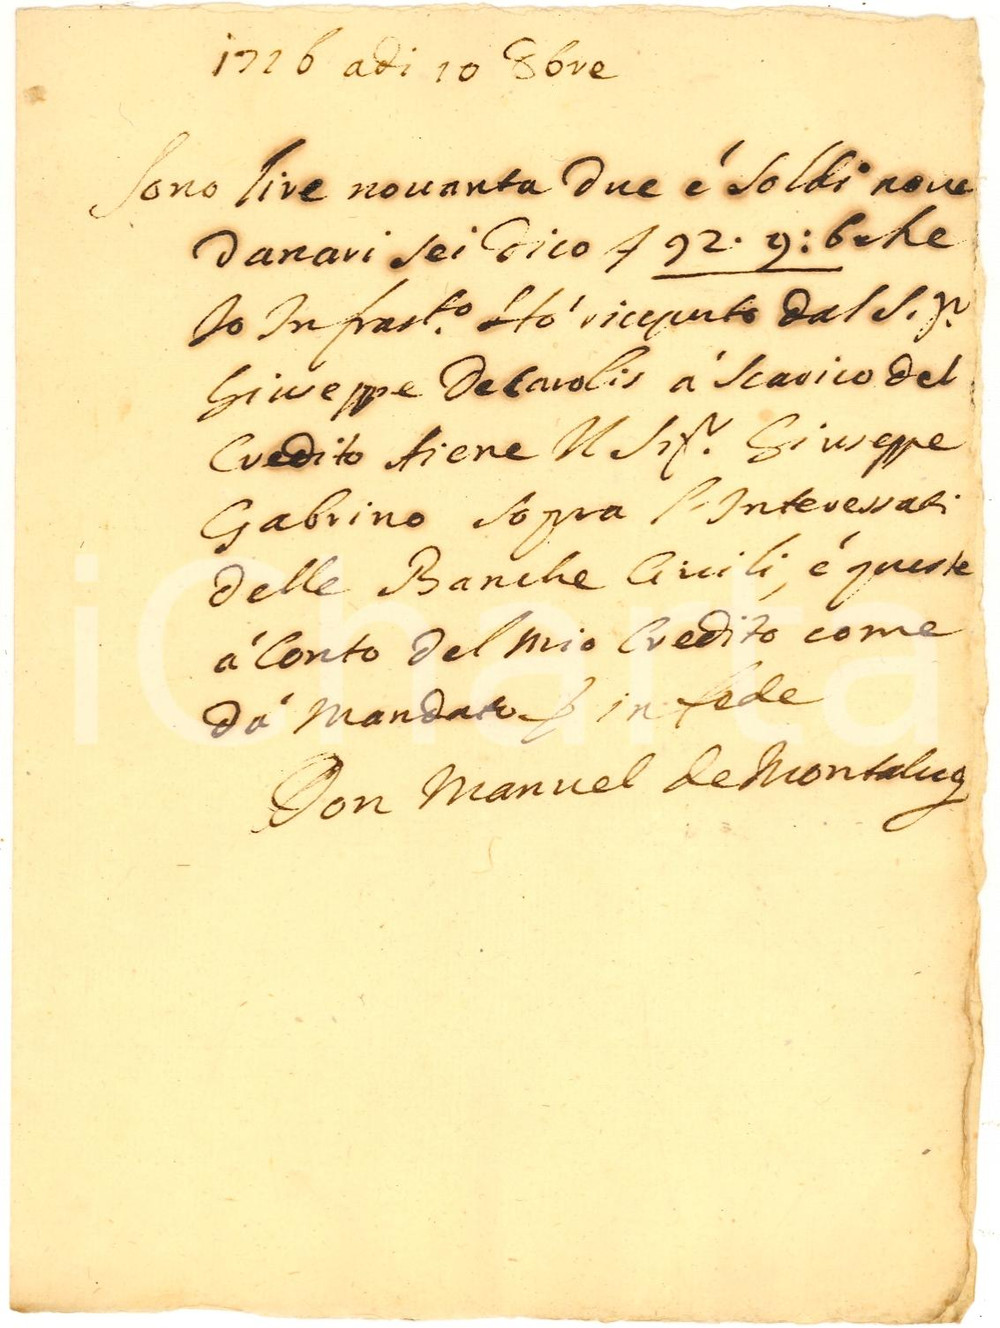 1726 adi 10 8bre
Sono lire nouanta due é soldi noue
danari sei dico £ 92. 9: 6 che
Io Infrasto. hó riceputo dal Sigr.
Giuseppe Decarolis á scarico del
Credito tiene Il Sigr. Giuseppe
Gabrino sopra l'Interessati
delle Banche Ciuili, é queste
á Conto del mio Credito come
dá mandato in fede
Don Manuel de Montalug
iCharta